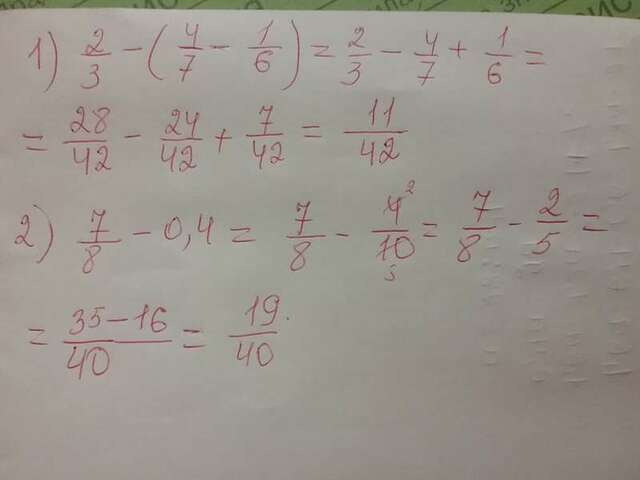 1) 2/3 - (4/7 - 1/6) = 2/3 - 4/7 + 1/6 =
= 28/42 - 24/42 + 7/42 = 11/42
2) 7/8 - 0,4 = 7/8 - 4²/10₅ = 7/8 - 2/5 =
= 35-16/40 = 19/40.